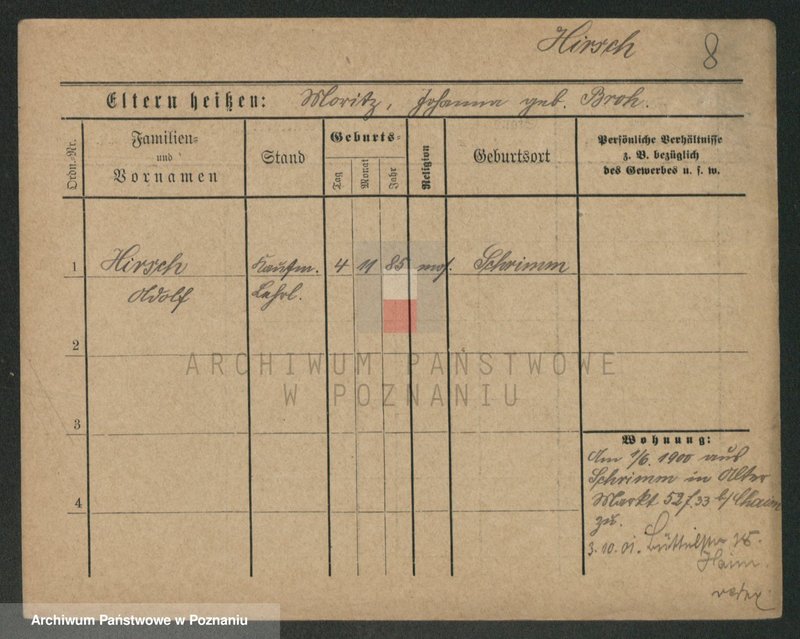 Hirsch 8
Eltern heißen: Moritz, Johanna geb. Broh.
Ordn.-Nr.
Familien- und Vornamen
Stand
Geburts-
Tag
Monat
Jahr
Religion
Geburtsort
Persönliche Verhältnisse
z. B. bezüglich
des Gewerbes u. s. w.
1 Hirsch Kaufm. 4 11 85 mos. Schrimm
Adolf Lehrl.
2
ARCHIWUM PAŃSTWOWE
W POZNANIU
3
Wohnung:
Am 1/6. 1900 aus
Schrimm in Alter
Markt 52/
4
zu.
3.10.01.
Haim.
Archiwum Państwowe w Poznaniu